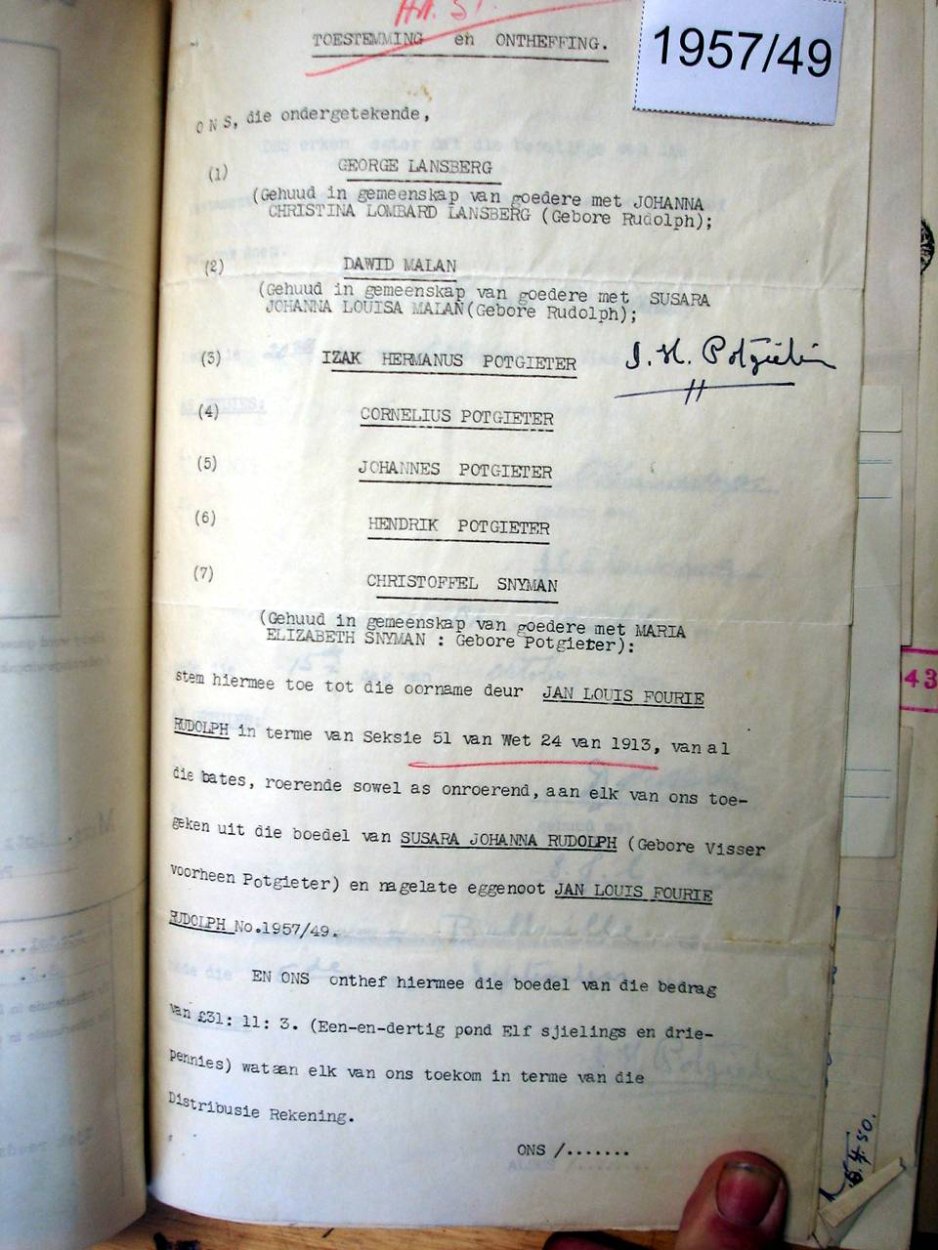 TOESTEMMING en ONTHEFFING.
1957/49
O N S, die ondergetekende,
(1) GEORGE LANSBERG
(Gehuud in gemeenskap van goedere met JOHANNA
CHRISTINA LOMBARD LANSBERG (Gebore Rudolph);
(2) DAWID MALAN
(Gehuud in gemeenskap van goedere met SUSARA
JOHANNA LOUISA MALAN(Gebore Rudolph);
(3) IZAK HERMANUS POTGIETER I. H. Potgieter
(4) CORNELIUS POTGIETER
(5) JOHANNES POTGIETER
(6) HENDRIK POTGIETER
(7) CHRISTOFFEL SNYMAN
(Gehuud in gemeenskap van goedere met MARIA
ELIZABETH SNYMAN : Gebore Potgieter):
stem hiermee toe tot die oorname deur JAN LOUIS FOURIE
RUDOLPH in terme van Seksie 51 van Wet 24 van 1913, van al
die bates, roerende sowel as onroerend, aan elk van ons toe-
geken uit die boedel van SUSARA JOHANNA RUDOLPH (Gebore Visser
voorheen Potgieter) en nagelate eggenoot JAN LOUIS FOURIE
RUDOLPH No.1957/49.
EN ONS onthef hiermee die boedel van die bedrag
van £31: 11: 3. (Een-en-dertig pond Elf sjielings en drie-
pennies) wataan elk van ons toekom in terme van die
Distribusie Rekening.
ONS /.......
43